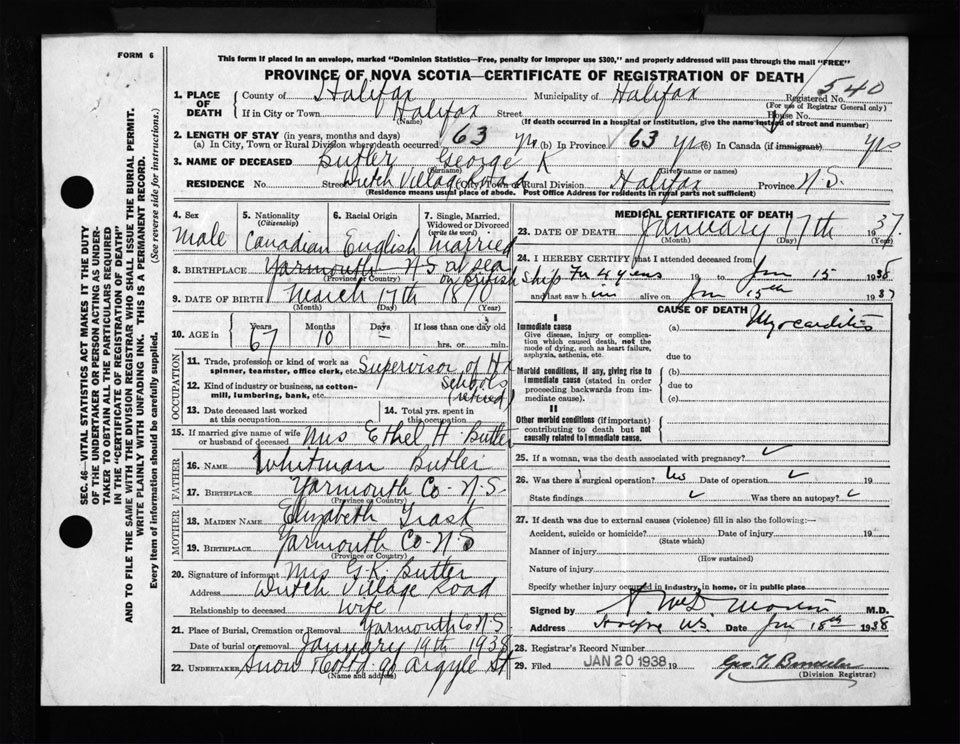 FORM 6
This form if placed in an envelope, marked "Dominion Statistics—Free, penalty for improper use $300," and properly addressed will pass through the mail "FREE"
PROVINCE OF NOVA SCOTIA—CERTIFICATE OF REGISTRATION OF DEATH
540
1. PLACE OF DEATH
County of Halifax Municipality of Halifax Registered No.
(For use of Registrar General only)
If in City or Town Halifax Street House No.
(Name) (If death occurred in a hospital or institution, give the name instead of street and number)
2. LENGTH OF STAY (in years, months and days)
(a) In City, Town or Rural Division where death occurred 63 yrs (b) In Province 63 yrs (c) In Canada (if immigrant) yrs
3. NAME OF DECEASED Butler George K
(Surname) (Given name or names)
RESIDENCE No. Street Dutch Village Road City, Town or Rural Division Halifax Province N.S.
(Residence means usual place of abode. Post Office Address for residents in rural parts not sufficient)
4. Sex
Male
5. Nationality
(Citizenship)
Canadian
6. Racial Origin
English
7. Single, Married, Widowed or Divorced
(write the word)
Married
8. BIRTHPLACE Yarmouth N.S. at sea
(Province or Country) on British ship
9. DATE OF BIRTH March 17th 1870
(Month) (Day) (Year)
10. AGE in
Years Months Days If less than one day old
67 10 — hrs. or min.
OCCUPATION
11. Trade, profession or kind of work as spinner, teamster, office clerk, etc. Supervisor of Hx
12. Kind of industry or business, as cotton-mill, lumbering, bank, etc. Schools
(retired)
13. Date deceased last worked at this occupation
14. Total yrs. spent in this occupation
15. If married give name of wife or husband of deceased Mrs Ethel H. Butler
FATHER
16. NAME Whitman Butler
17. BIRTHPLACE Yarmouth Co- N.S.
(Province or Country)
MOTHER
18. MAIDEN NAME Elizabeth Trask
19. BIRTHPLACE Yarmouth Co- N.S
(Province or Country)
20. Signature of informant Mrs G.K. Butler
Address Dutch Village Road
Relationship to deceased Wife
21. Place of Burial, Cremation or Removal Yarmouth Co N.S
Date of burial or removal January 19th 1938
22. UNDERTAKER Snow & Co Ltd 90 Argyle St
(Name and address)
MEDICAL CERTIFICATE OF DEATH
23. DATE OF DEATH January 17th 1937.
(Month) (Day) (Year)
24. I HEREBY CERTIFY that I attended deceased from
For 4 years 19 to Jan 15 1938
and last saw h im alive on Jan 15th 1937
CAUSE OF DEATH
I
Immediate cause
Give disease, injury or complication which caused death, not the mode of dying, such as heart failure, asphyxia, asthenia, etc.
(a) Myocarditis
due to
Morbid conditions, if any, giving rise to immediate cause (stated in order proceeding backwards from immediate cause).
(b)
due to
(c)
II
Other morbid conditions (if important) contributing to death but not causally related to immediate cause.
25. If a woman, was the death associated with pregnancy?
26. Was there a surgical operation? No Date of operation 19
State findings Was there an autopsy?
27. If death was due to external causes (violence) fill in also the following:—
Accident, suicide or homicide? Date of injury 19
(State which)
Manner of injury
(How sustained)
Nature of injury
Specify whether injury occurred in industry, in home, or in public place
Signed by M.D.
Address N.S. Date Jan 18th 1938
28. Registrar's Record Number
29. Filed JAN 20 1938 19
(Division Registrar)
SEC. 46—VITAL STATISTICS ACT MAKES IT THE DUTY
OF THE UNDERTAKER OR PERSON ACTING AS UNDER-
TAKER TO OBTAIN ALL THE PARTICULARS REQUIRED
IN THE "CERTIFICATE OF REGISTRATION OF DEATH"
AND TO FILE THE SAME WITH THE DIVISION REGISTRAR WHO SHALL ISSUE THE BURIAL PERMIT.
WRITE PLAINLY WITH UNFADING INK. THIS IS A PERMANENT RECORD.
Every item of information should be carefully supplied. (See reverse side for instructions.)